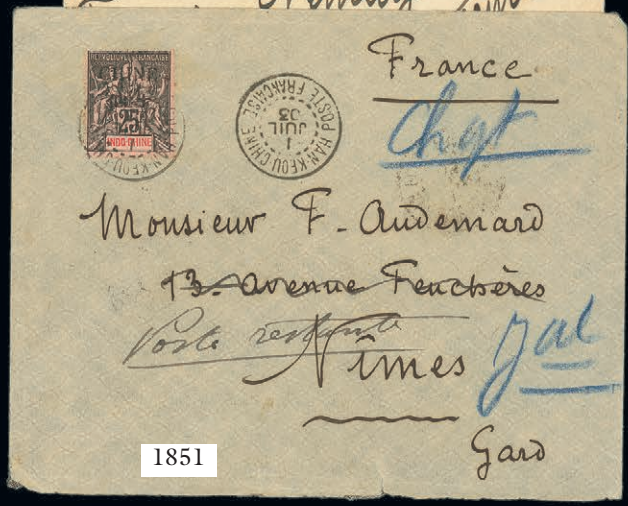 France
RÉPUBLIQUE FRANÇAISE
CHINE
25
INDO-CHINE
HAN-KEOU CHINE
1
JUIL
03
POSTE FRANÇAISE
Chgt
Monsieur F. Audemard
13. avenue Feuchères
Poste restante
Nîmes
Gard
1851